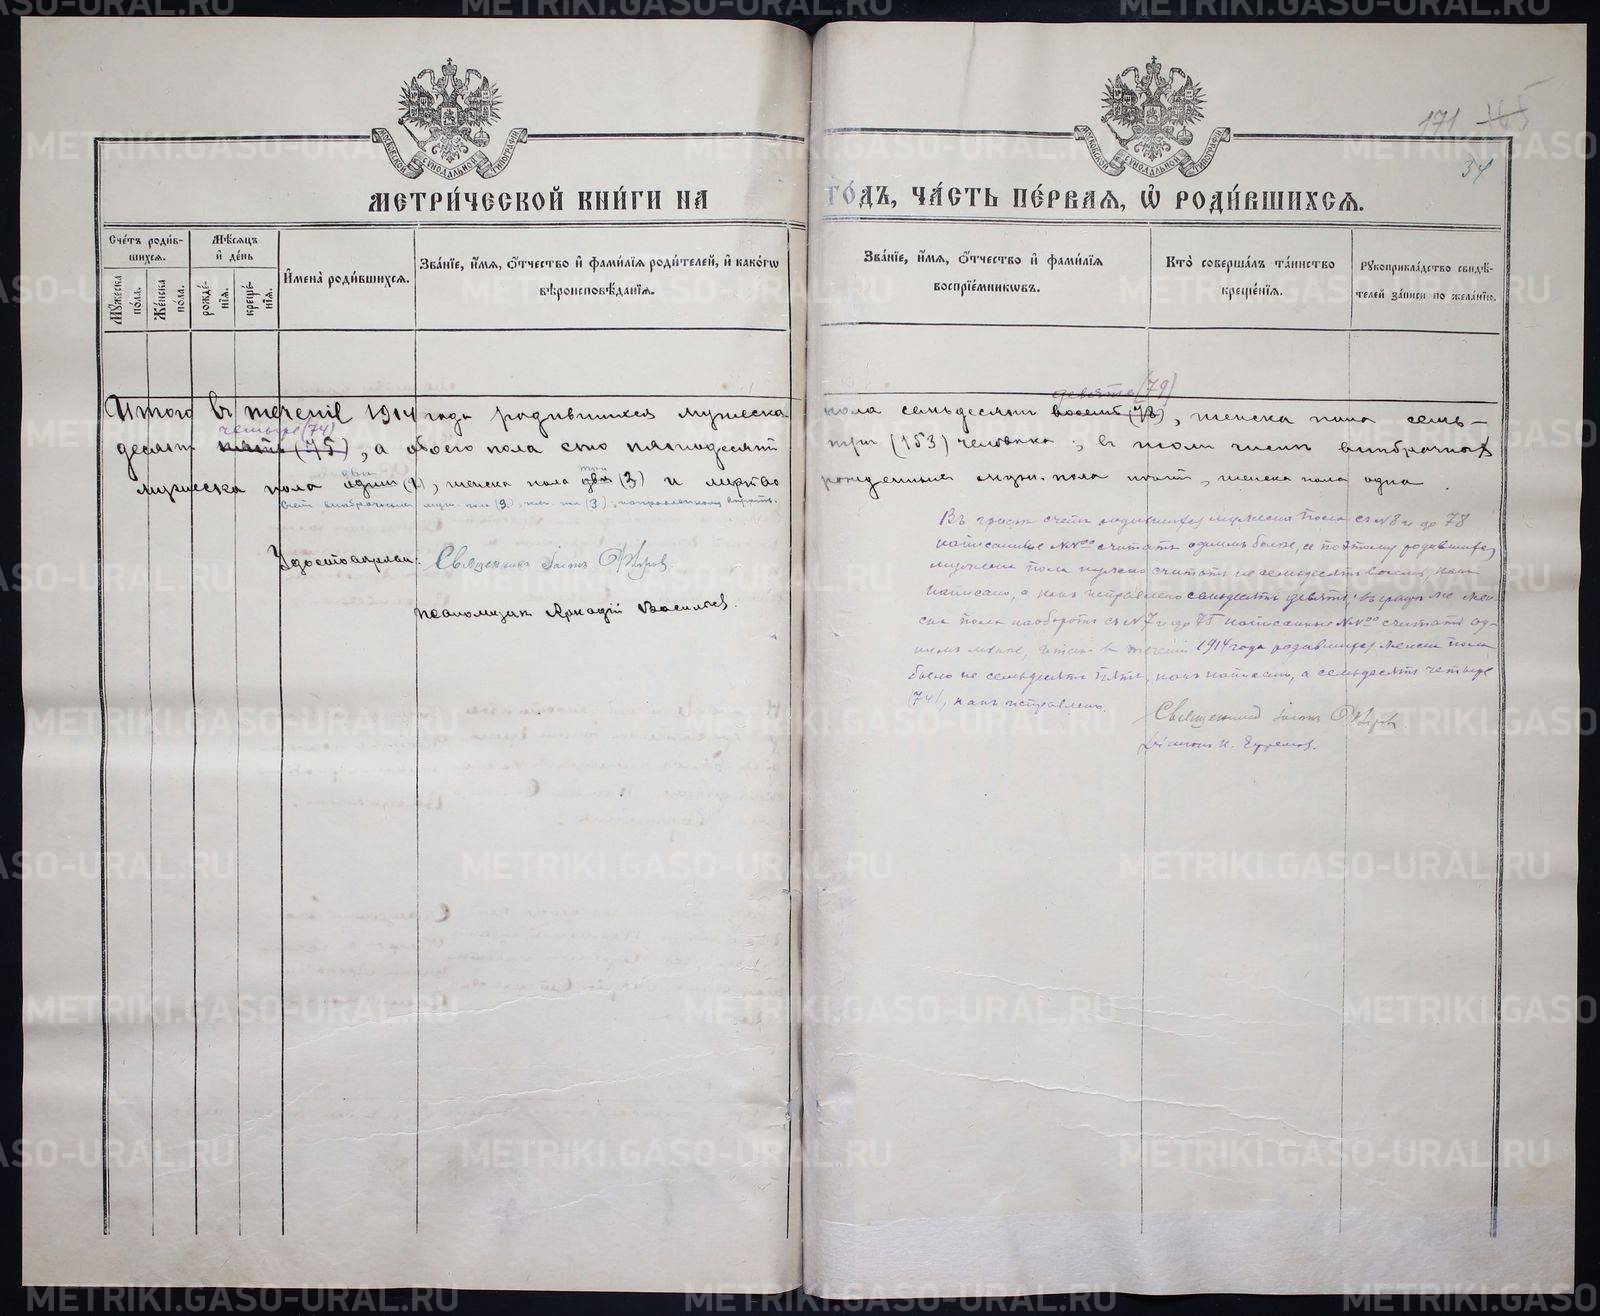 МОСКОВСКОЙ СѴНОДАЛЬНОЙ ТИПОГРАФІИ
МОСКОВСКОЙ СѴНОДАЛЬНОЙ ТИПОГРАФІИ
171
34
МЕТРИ́ЧЕСКОЙ КНИ́ГИ НА ГО́ДЪ, ЧА́СТЬ ПЕ́РВАЯ, Ѡ РОДИ́ВШИХСЯ.
Сче́тъ роди́вшихся.
Мѣ́сяцъ и де́нь
Мꙋжеска по́ла.
Же́нска по́ла.
рожде́нїя.
креще́нїя.
И҆мена̀ роди́вшихся.
Зва́нїе, и҆́мя, ѻ҆́тчество и҆ фами́лїя роди́телей, и҆ како́гѡ вѣроисповѣ́данїя.
Зва́нїе, и҆́мя, ѻ҆́тчество и҆ фами́лїя воспрїе́мникѡвъ.
Кто̀ соверша́лъ та́инство креще́нїя.
Рꙋкоприкла́дство свидѣ́телей за́писи по жела́нїю.
девять (79)
Итого въ теченіе 1914 года родившихся мужеска пола семьдесятъ восемь (78), женска пола семь-
четыре (74)
десятъ пять (75), а обоего пола сто пятьдесятъ три (153) человѣка; въ томъ числѣ внѣбрачныхъ
два три
мужеска пола одинъ (1), женска пола два (3) и мертво рожденныхъ муж. пола пять, женска пола одна.
Счетъ внѣбрачныхъ муж. пола (2), жен. пола (3), исправленному вѣрить.
Удостовѣряемъ:
Священникъ Іоаннъ
Псаломщикъ Аркадій Васильевъ.
Въ графѣ счетъ родившихся мужеска пола съ № 8 и до 78
написанные №№ считать однимъ болѣе, и поэтому родившихся
мужеска пола нужно считать не семьдесятъ восемь, какъ
написано, а какъ исправлено семьдесятъ девять; въ графѣ же жен-
ска пола наоборотъ съ № 7 и до 75 написанные №№ считать од-
нимъ менѣе, въ теченіе 1914 года родившихся женска пола
было не семьдесятъ пять, какъ написано, а семьдесятъ четыре
(74), какъ исправлено.
Священникъ Іоаннъ
Діаконъ И. Ефремовъ.
METRIKI.GASO-URAL.RU